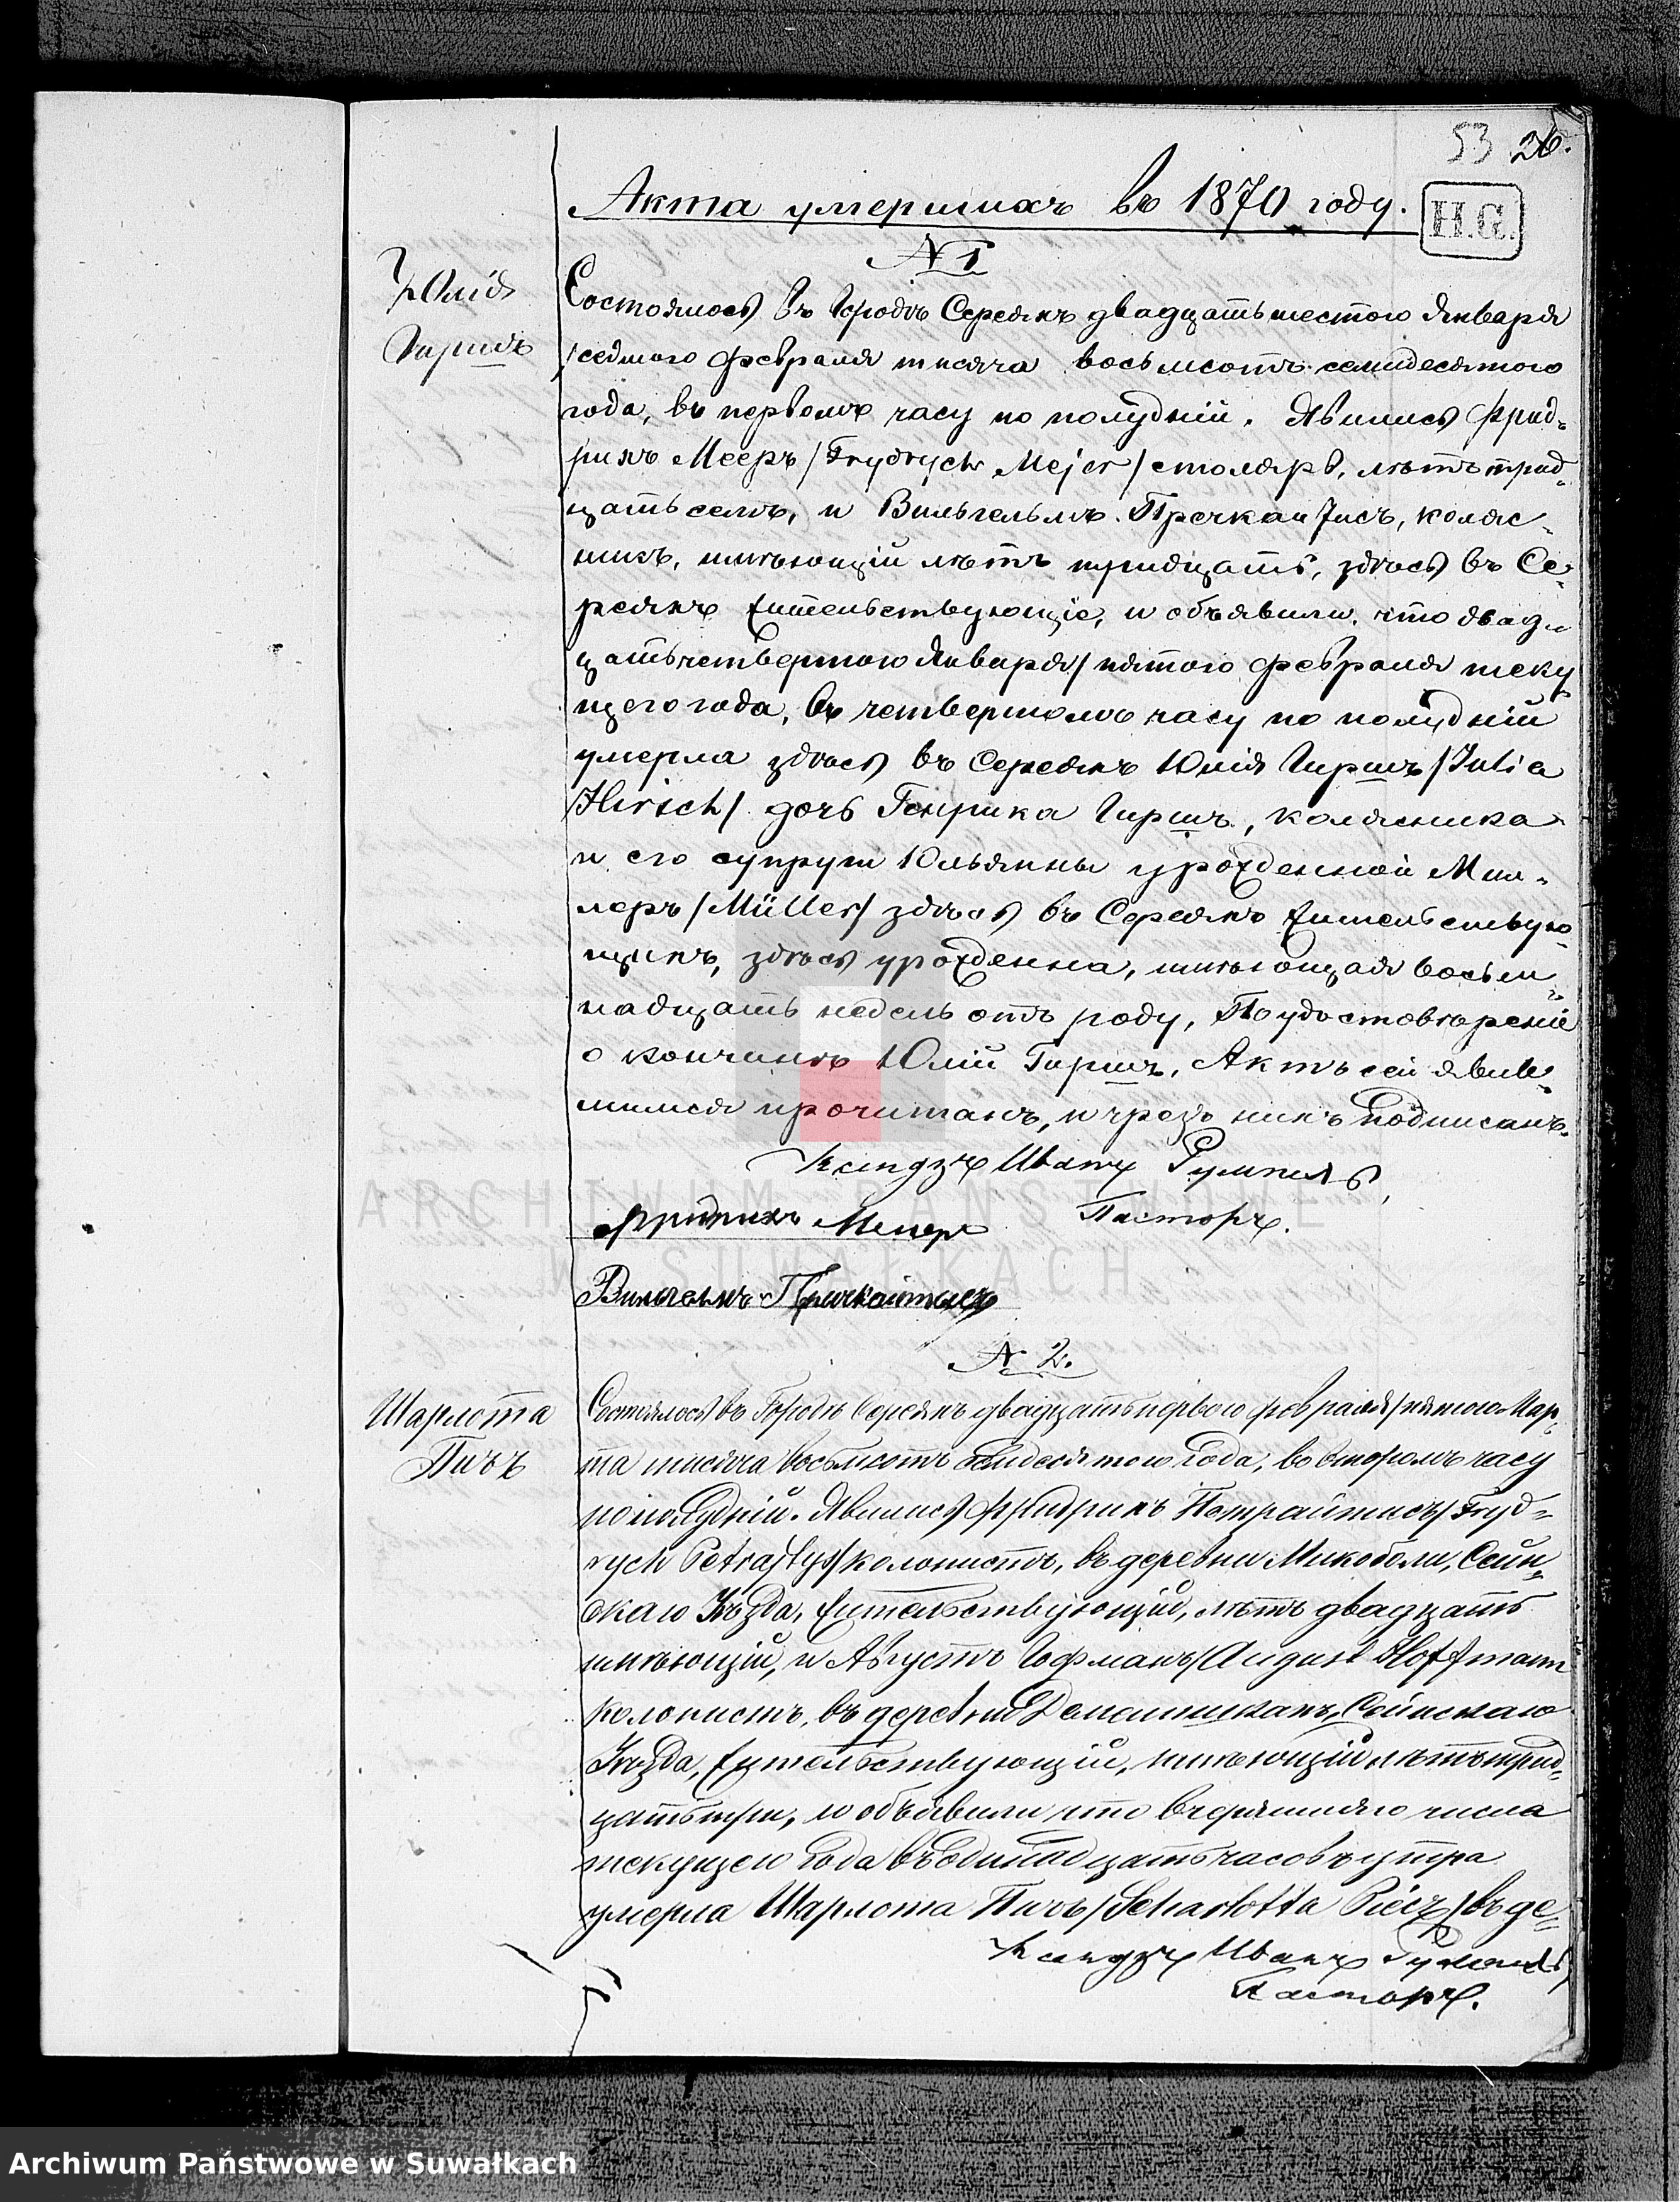 53 26.
Акта умершихъ въ 1870 году.
H.G.
N 1
Юлія
Гиршъ
Состоялось въ Городѣ Сереяхъ двадцать шестого Января
/седмого Февраля тысяча восьмсотъ семидесятого
года, въ первомъ часу по полудній. Явились Фрид-
рихъ Мееръ /Frydrych Mejer/ столяръ, лѣтъ трид-
цать семь, и Вильгельмъ Пречкайтисъ, коляс-
никъ, имѣющій лѣтъ тридцать, здѣсь въ Се-
реяхъ жительствующіе, и объявили, что двад-
цать четвертого Января/пятого Февраля теку
щего года, въ четвертомъ часу по полудній
умерла здѣсь въ Сереяхъ Юлія Гиршъ /Julia
Hirsch/ дочь Генрика Гиршъ, колясника
и его супруги Юльянны урожденной Мил-
леръ /Müller/ здѣсь въ Сереяхъ жительствую-
щихъ, здѣсь урожденна, имѣющая восьм-
надцать недель отъ роду, По удостовѣреніе
о кончинѣ Юлій Гиршъ, Актъ сей явив-
шимся прочитанъ, и чрезъ нихъ подписанъ.
Ксендзъ Иванъ Румпель,
Пасторъ.
Фридрихъ Меиеръ
Вильгельмъ Пречкайтисъ
N 2.
Шарлота
Пичъ
Состоялось въ Городѣ Сереяхъ двадцать первого Февраля/пятого Мар-
та тысяча восьмсотъ семидесятого года, во второмъ часу
по полудній. Явились Фридрихъ Петрайтисъ /Fryd-
rych Petrajtys/ колонистъ, въ деревни Микоболи, Сейн-
скаго Уѣзда, жительствующій, лѣтъ двадцать
имѣющій, и Августъ Гофманъ /August Hoffmann
колонистъ, въ деревни Сейнскаго
Уѣзда, жительствующій, имѣющій лѣтъ трид-
цать три, и объявили что вчерашняго числа
текущего года въ одинадцать часовъ утра
умерла Шарлота Пичъ /Scharlotta Piécz/ въ де-
Ксендзъ Иванъ Румпель,
Пасторъ.
ARCHIWUM PAŃSTWOWE
W SUWAŁKACH
Archiwum Państwowe w Suwałkach